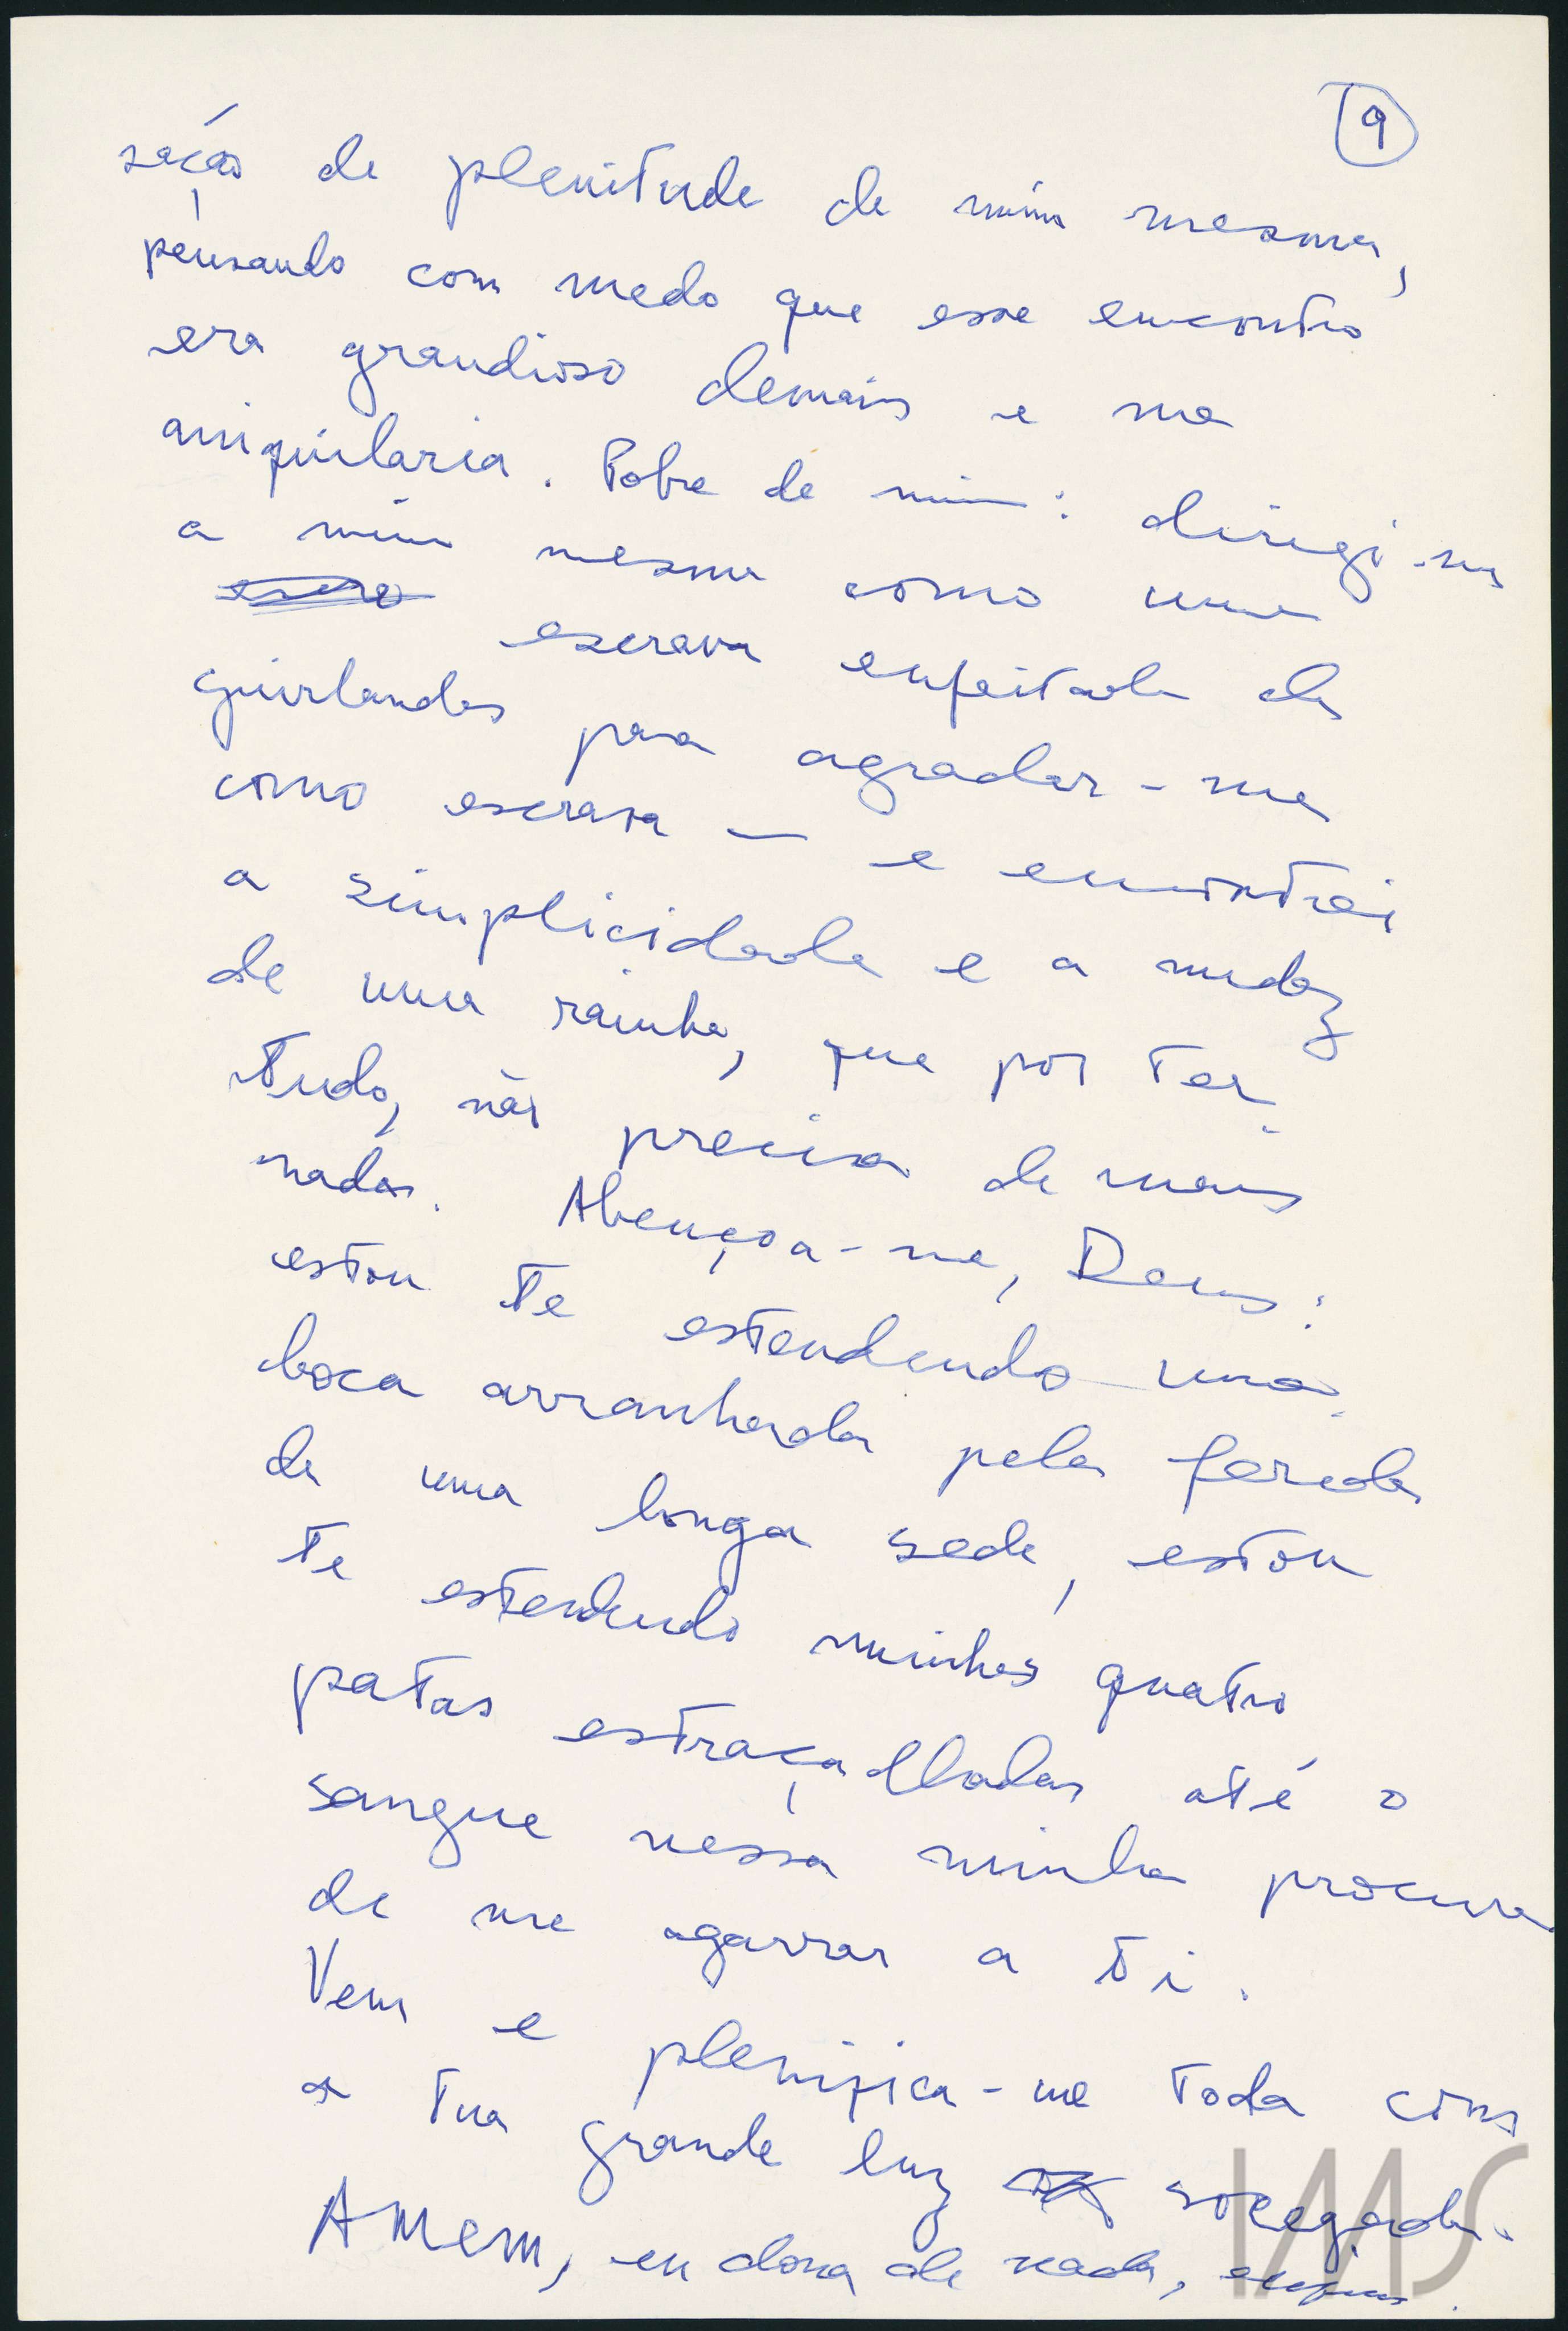 9
sação de plenitude de mim mesma,
pensando com medo que esse encontro
era grandioso demais e me
aniquilaria. Pobre de mim: dirigi-me
a mim mesma como uma
escrava enfeitada de
guirlandas para agradar-me
como escrava — e encontrei
a simplicidade e a nudez
de uma rainha, que por ter
tudo, não precisa de mais
nada. Abençoa-me, Deus:
estou te estendendo uma
boca arranhada pela ferida
de uma longa sede, estou
te estendendo minhas quatro
patas estraçalhadas até o
sangue nessa minha procura
de me agarrar a ti.
Vem e plenifica-me toda com
a tua grande luz socegada.
Amem, eu dona de nada, enfim.
IMS